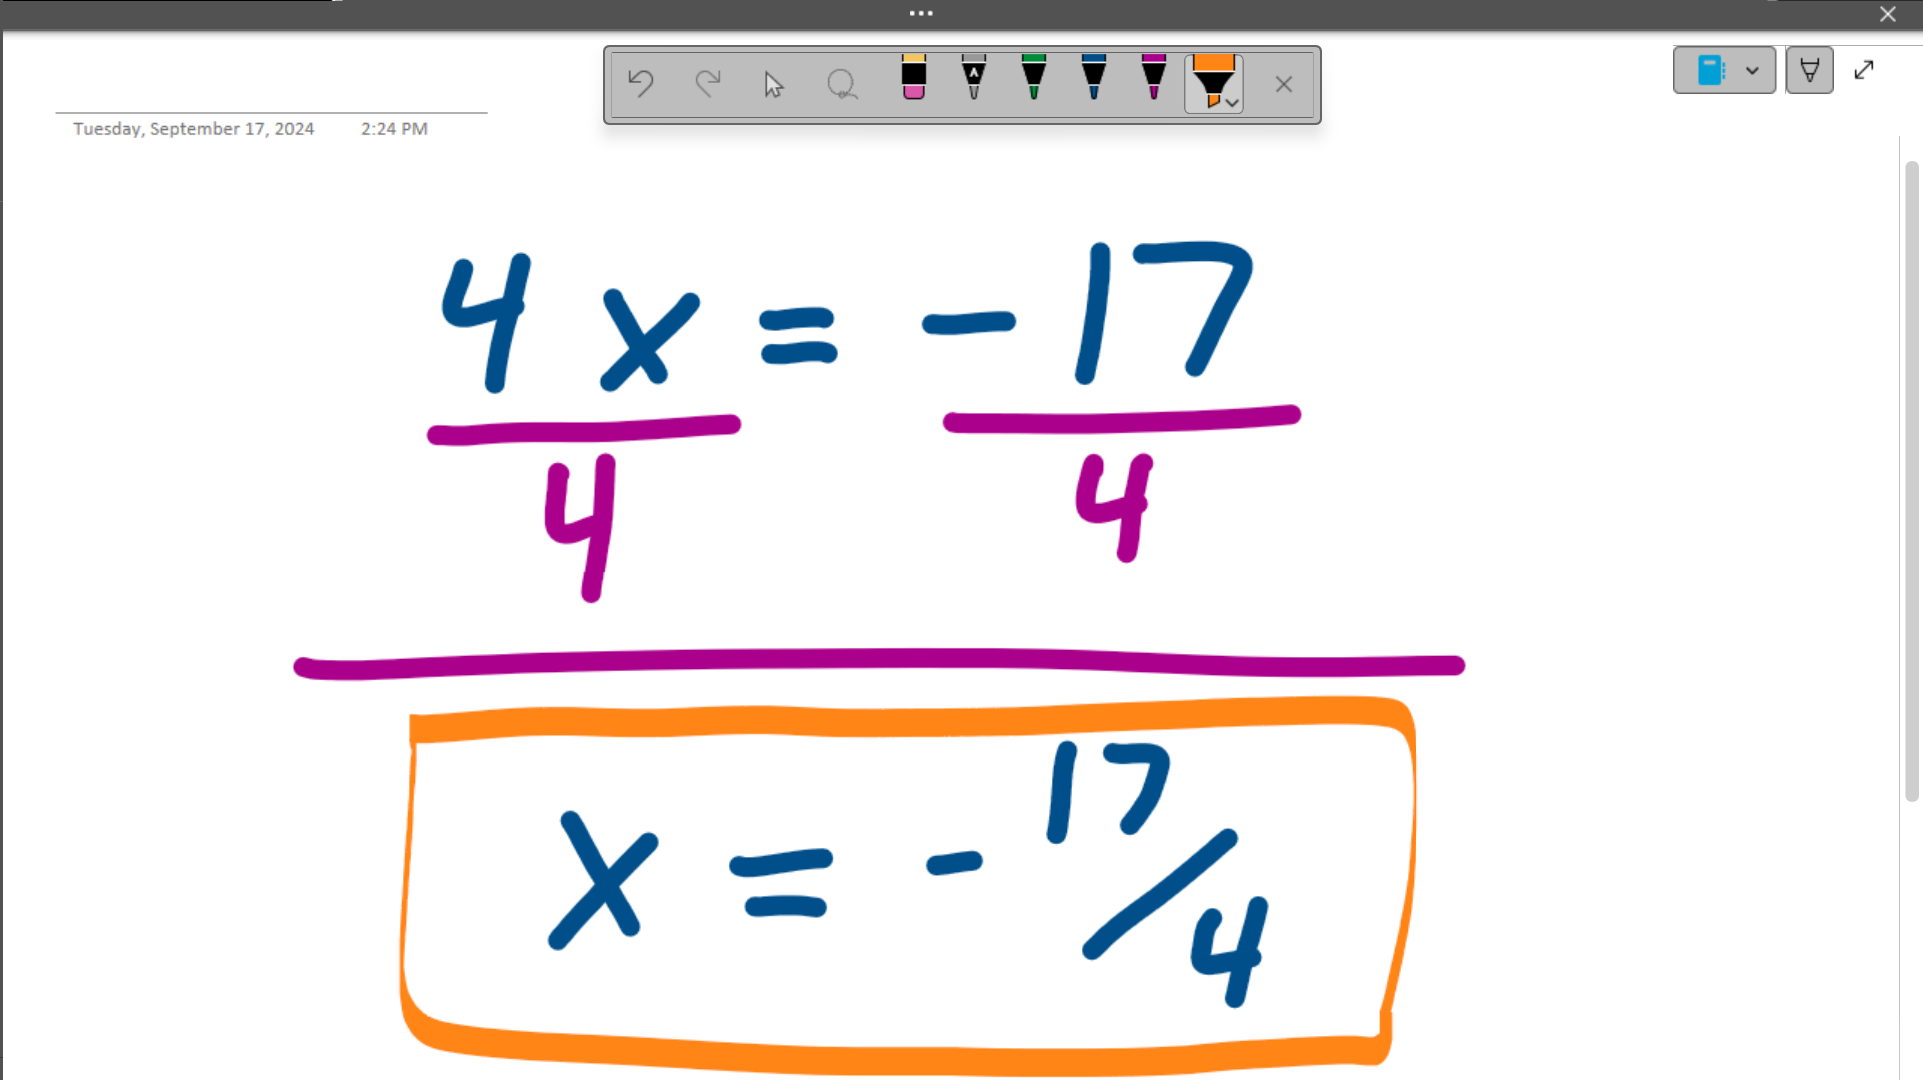 Tuesday, September 17, 2024 2:24 PM
4x = -17
4 4
x = -17/4